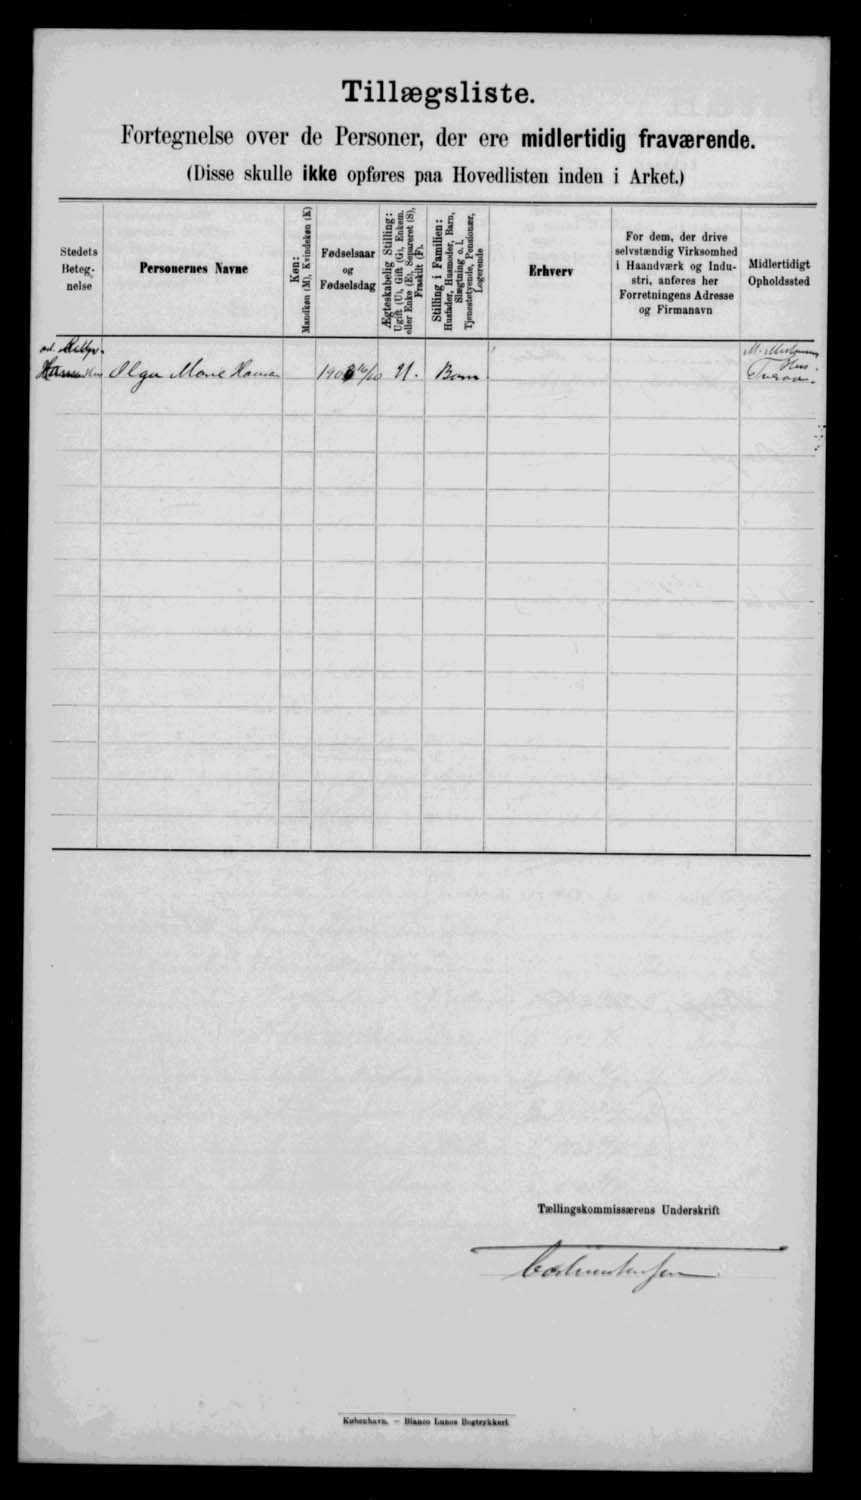 Tillægsliste.
Fortegnelse over de Personer, der ere midlertidig fraværende.
(Disse skulle ikke opføres paa Hovedlisten inden i Arket.)
Stedets
Beteg-
nelse
Personernes Navne
Køn:
Mandkøn (M), Kvindekøn (K)
Fødselsaar
og
Fødselsdag
Ægteskabelig Stilling:
Ugift (U), Gift (G), Enkem.
eller Enke (E), Separeret (S),
Fraskilt (F).
Stilling i Familien:
Husfader, Husmoder, Barn,
Slægtning o. l.,
Tjenestetyende, Pensionær,
Logerende
Erhverv
For dem, der drive
selvstændig Virksomhed
i Haandværk og Indu-
stri, anføres her
Forretningens Adresse
og Firmanavn
Midlertidigt
Opholdssted
Hus
Olga Marie Hansen
16/10
U.
Barn
Hus
Tællingskommissærens Underskrift
København. – Bianco Lunos Bogtrykkeri